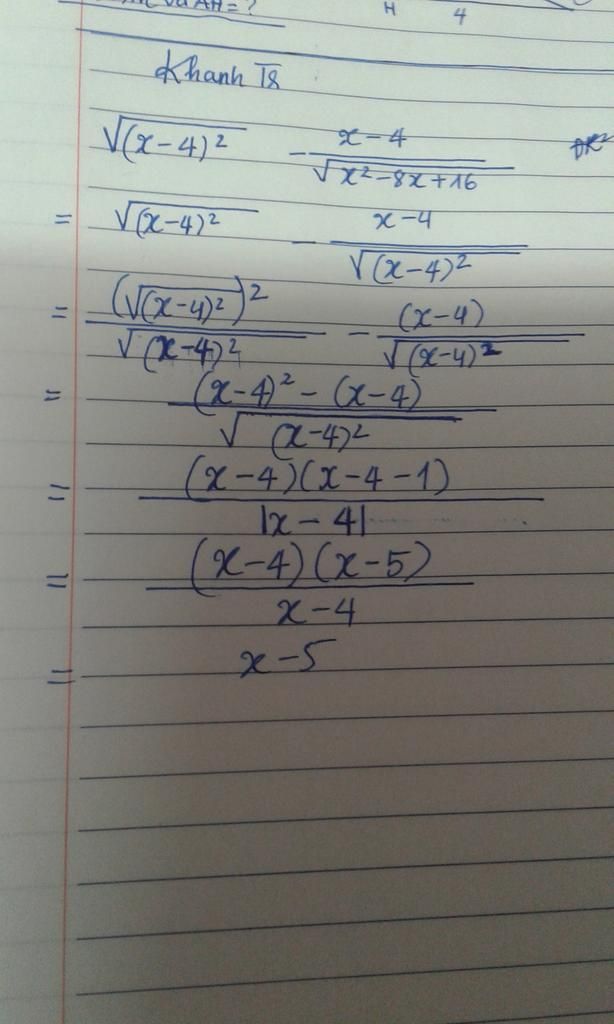 và AH = ?
H 4
Khanh T8
√(x-4)² - x-4/√x²-8x+16
= √(x-4)² - x-4/√(x-4)²
= (√(x-4)²)²/√(x-4)² - (x-4)/√(x-4)²
= (x-4)² - (x-4)/√(x-4)²
= (x-4)(x-4-1)/|x-4|
= (x-4)(x-5)/x-4
= x-5